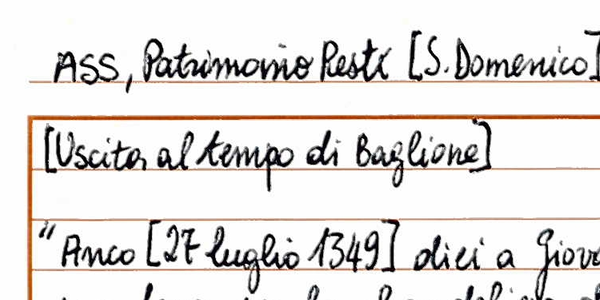 ASS, Patrimonio Resti [S. Domenico]
[Uscita al tempo di Baglione]
"Anco [27 luglio 1349] diei a Giov